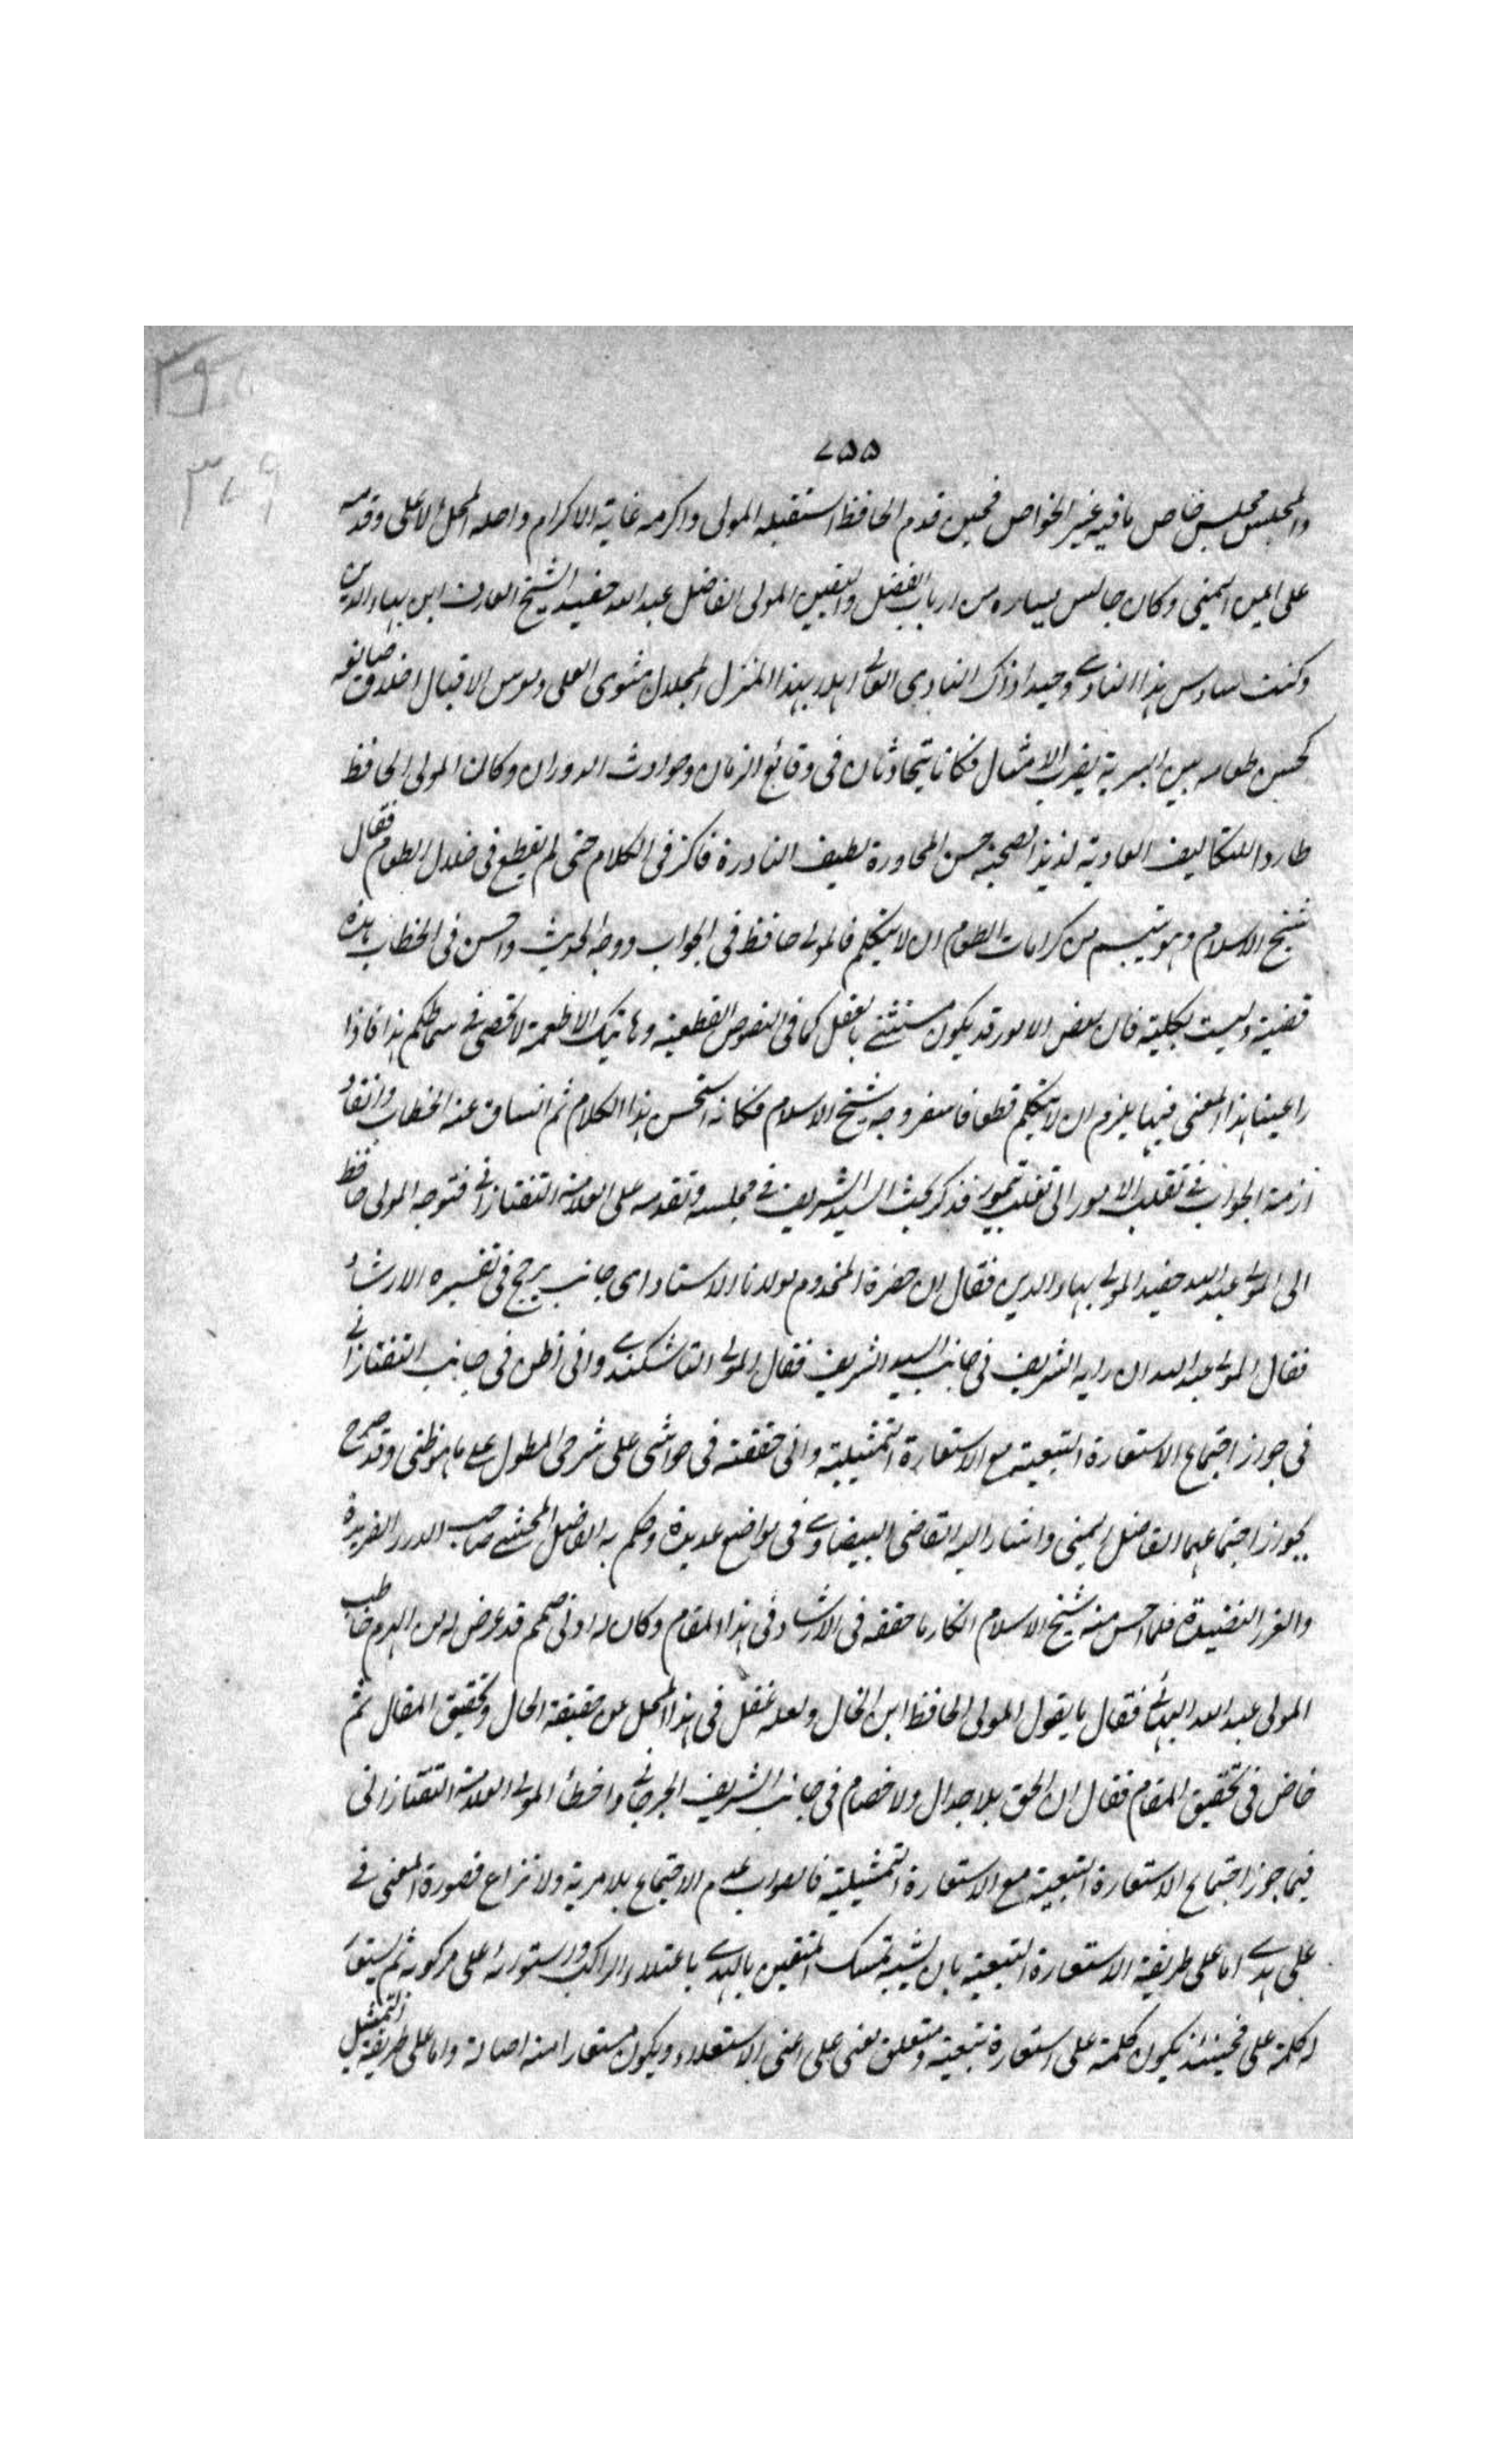 ٧٥٥
والمجلس مجلس خاص ما فيه غير الخواص فحين قدم الحافظ استقبله المولى واكرمه غاية الاكرام واحله المحل الاعلى وقدمه
على اليمين اليمنى وكان جالس يساره من ارباب الفضل واليقين المولى الفاضل عبد الله حفيد الشيخ العارف ابن بهاء الدين
وكنت سادس هذا النادي وحيد اذ ذاك النادي العالي اهلا بهذا المنزل المجلل مثوى العلى الاقبال اخلاق ضيافة
كحسن طعامه بين البرية يضرب الامثال فكانا يتحادثان في وقائع الزمان وحوادث الدوران وكان المولى الحافظ
طاردا للتكاليف العادية لذيذ الصحبة حسن المحاورة لطيف النادرة فاكثر في الكلام حتى لم يقطع في خلال الطعام فقال
شيخ الاسلام وهو يتبسم من كرامات الطعام ان لا يتكلم فالمولى حافظ في الجواب ووجه الحديث واحسن في الخطاب هذه
قضية وليست بكلية فان بعض الامور قد يكون مستثنى بالعقل كما في النصوص القطعية وهاتيك الاطعمة لا تحصى في سماطكم هذا فاذا
راعينا هذا المعنى فيها يلزم ان لا يتكلم قطعا فاسفر وجه شيخ الاسلام فكانه استحسن هذا الكلام ثم انساق عنه الخطاب وانقاد
ازمة الجواب في تقلب الامور الى تغلب تيمور فذكر بحث السيد الشريف في مجلسه وتقدمه على العلامة التفتازاني فتوجه المولى حافظ
الى المولى عبد الله حفيد المولى بهاء الدين فقال ان حضرة المخدوم مولانا الاستاد اى جانب يرجح في تفسيره الارشاد
فقال المولى عبد الله ان رايه الشريف في جانب السيد الشريف فقال المولى التاشكندي واني اظن في جانب التفتازاني
في جواز اجتماع الاستعارة التبعية مع الاستعارة التمثيلية واني حققته في حواشي على شرحى المطول على ما هو ظنى وقد صرح
بجواز اجتماعهما الفاضل اليمني واشار اليه القاضي البيضاوي في مواضع عديدة وحكم به الفاضل المحشي صاحب الدرر الفريدة
والغرر النضيدة فلما احسن منه شيخ الاسلام انكار ما حققه في الارشاد في هذا المقام وكان له ادنى صمم قد عرض له من الهرم خاطب
المولى عبد الله البهائي فقال ما يقول المولى الحافظ ابن الخال ولعله غفل في هذا المحل عن حقيقة الحال وتحقيق المقال ثم
خاض في تحقيق المقام فقال ان الحق بلا جدال ولا خصام في جانب الشريف الجرجاني واخطأ المولى العلامة التفتازاني
فيما جوز اجتماع الاستعارة التبعية مع الاستعارة التمثيلية فالصواب عدم الاجتماع بلا مرية ولا نزاع فصورة المعنى في
على هدى اما على طريقة الاستعارة التبعية بان يشبه تمسك المتقين بالهدى باعتلاء الراكب واستوائه على مركوبه ثم يستعار
له كلمة على فحينئذ يكون كلمة على استعارة تبعية ومتعلق معنى على اعنى الاستعلاء ويكون مستعارا منه اصالة واما على طريقة التمثيل